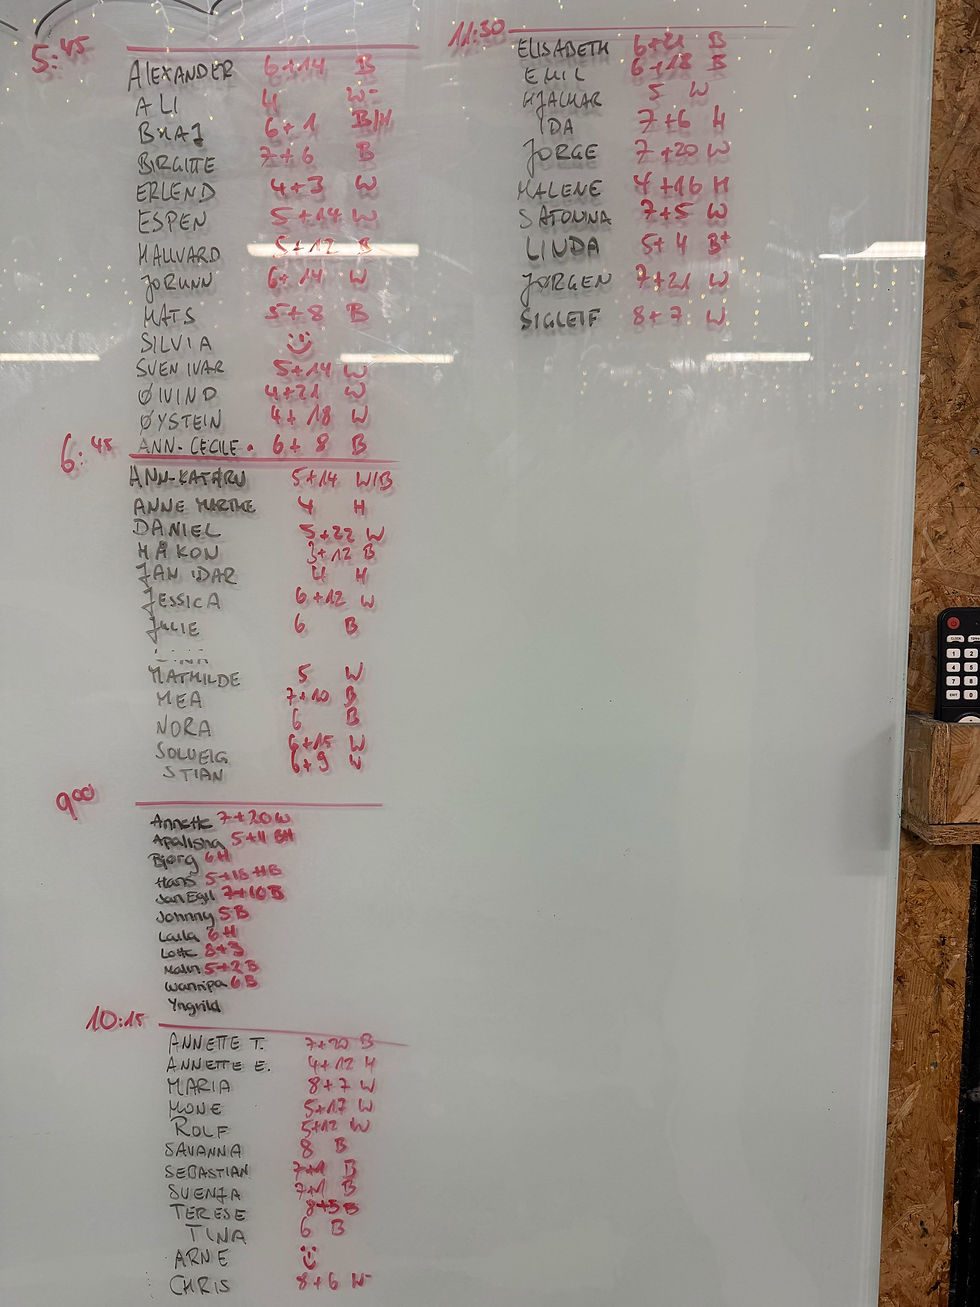 5:45
ALEXANDER 6+14 B
ALI 4 W-
6+1 B/H
BIRGITTE 7+6 B
ERLEND 4+3 W
ESPEN 5+14 W
HALLVARD 5+12 B
JORUNN 6+14 W
MATS 5+8 B
SILVIA ☺
SVEN IVAR 5+14 W
ØIVIND 4+21 W
ØYSTEIN 4+18 W
ANN-CECILE • 6+8 B
6:45
ANN-KATHRN 5+14 W/B
ANNE MARTHE 4 H
DANIEL 5+22 W
HÅKON 3+12 B
JAN IDAR 4 H
JESSICA 6+12 W
JULIE 6 B
MATHILDE 5 W
MEA 7+10 B
NORA 6 B
SOLVEIG 6+15 W
STIAN 6+9 W
9:00
Annette 7+20 W
5+11 BH
Bjørg 6H
Hans 5+18 HB
Jan Egil 7+10 B
Johnny 5 B
Laila 6 H
Lotte 8+3
Malin 5+2 B
Wannipa 6 B
Yngvild
10:15
ANNETTE T. 7+20 B
ANNETTE E. 4+12 H
MARIA 8+7 W
MONE 5+17 W
ROLF 5+12 W
SAVANNA 8 B
SEBASTIAN 7+1 B
SVENJA 7+1 B
TERESE 8+5 B
TINA 6 B
ARNE ☺
CHRIS 8+6 W-
11:30
ELISABETH 6+21 B
EMIL 6+18 B
HJALMAR 5 W
IDA 7+6 H
JORGE 7+20 W
MALENE 4+16 H
SATOUNA 7+5 W
LINDA 5+4 B+
JØRGEN 7+21 W
SIGLEIF 8+7 W
CLOCK
1 2
4 5
7 8
0